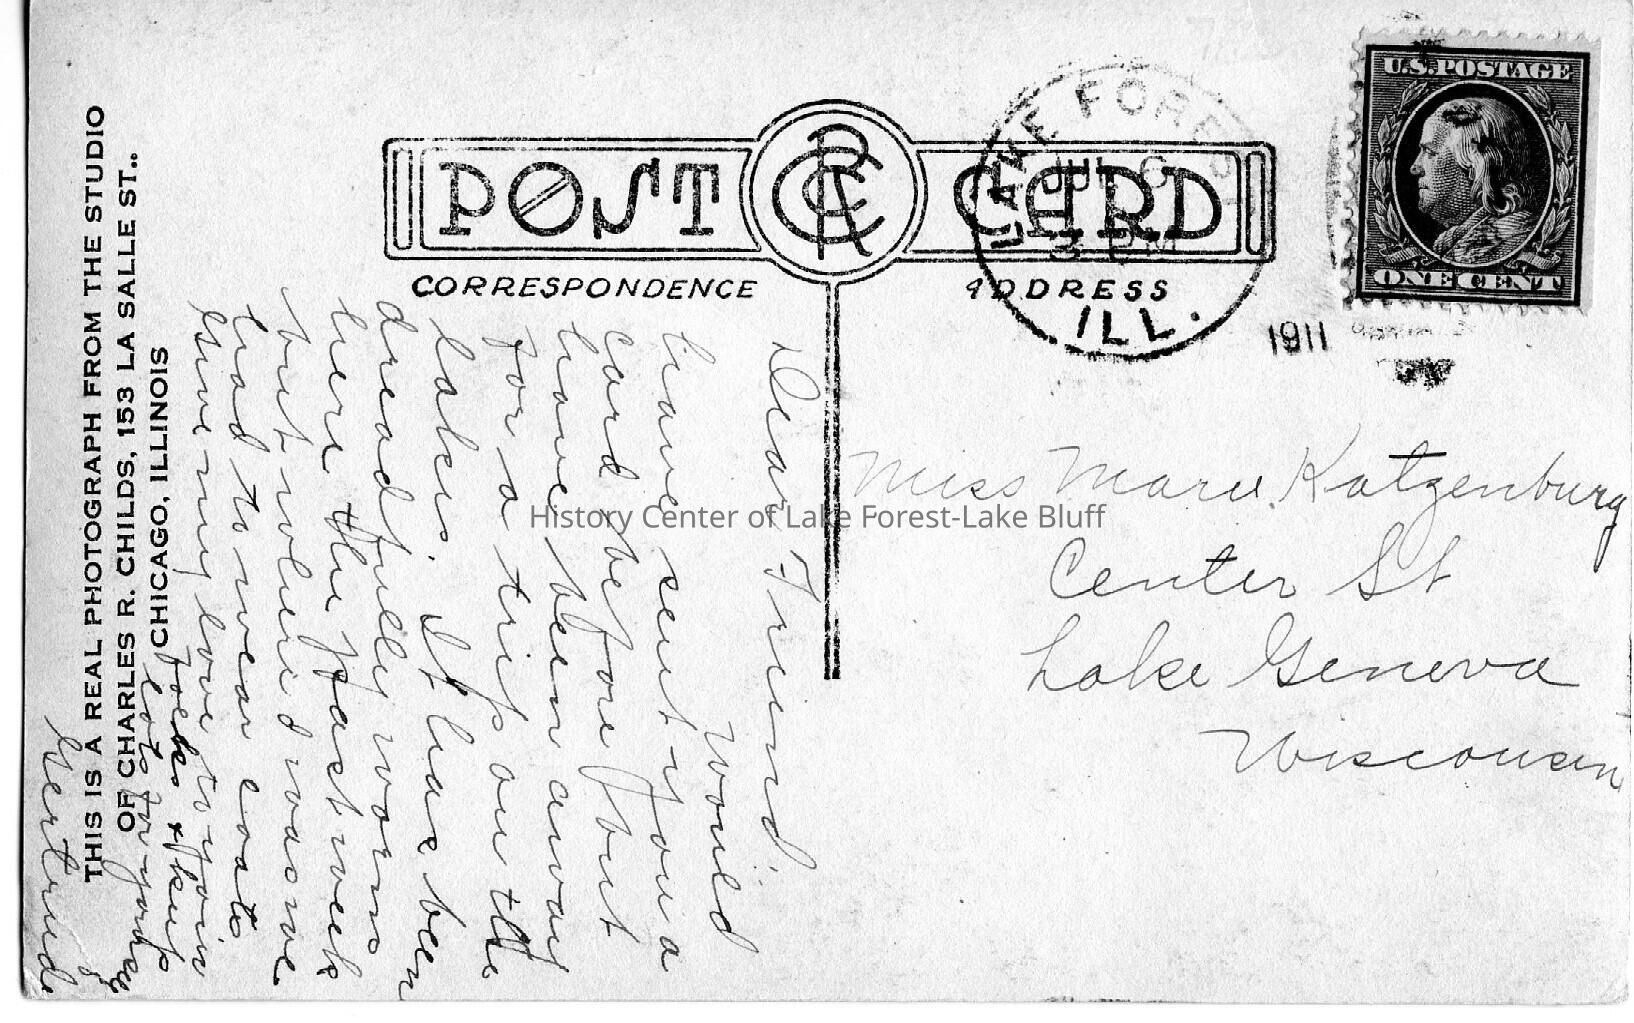 THIS IS A REAL PHOTOGRAPH FROM THE STUDIO
OF CHARLES R. CHILDS, 153 LA SALLE ST..
CHICAGO, ILLINOIS
POST CARD
CRC
CORRESPONDENCE
ADDRESS
LAKE FOREST
JUL 6
3 PM
ILL.
1911
U.S. POSTAGE
ONE CENT
Dear Friend:
Would
have sent you a
card before but
have been away
for a trip on the
lakes. It has been
dreadfully warm
here the past week
but where I was we
had to wear coats
Give my love to your
folks & keep
lots for yourself
Gertrude
Miss Marie Katzenburg
Center St
Lake Geneva
Wisconsin
History Center of Lake Forest-Lake Bluff